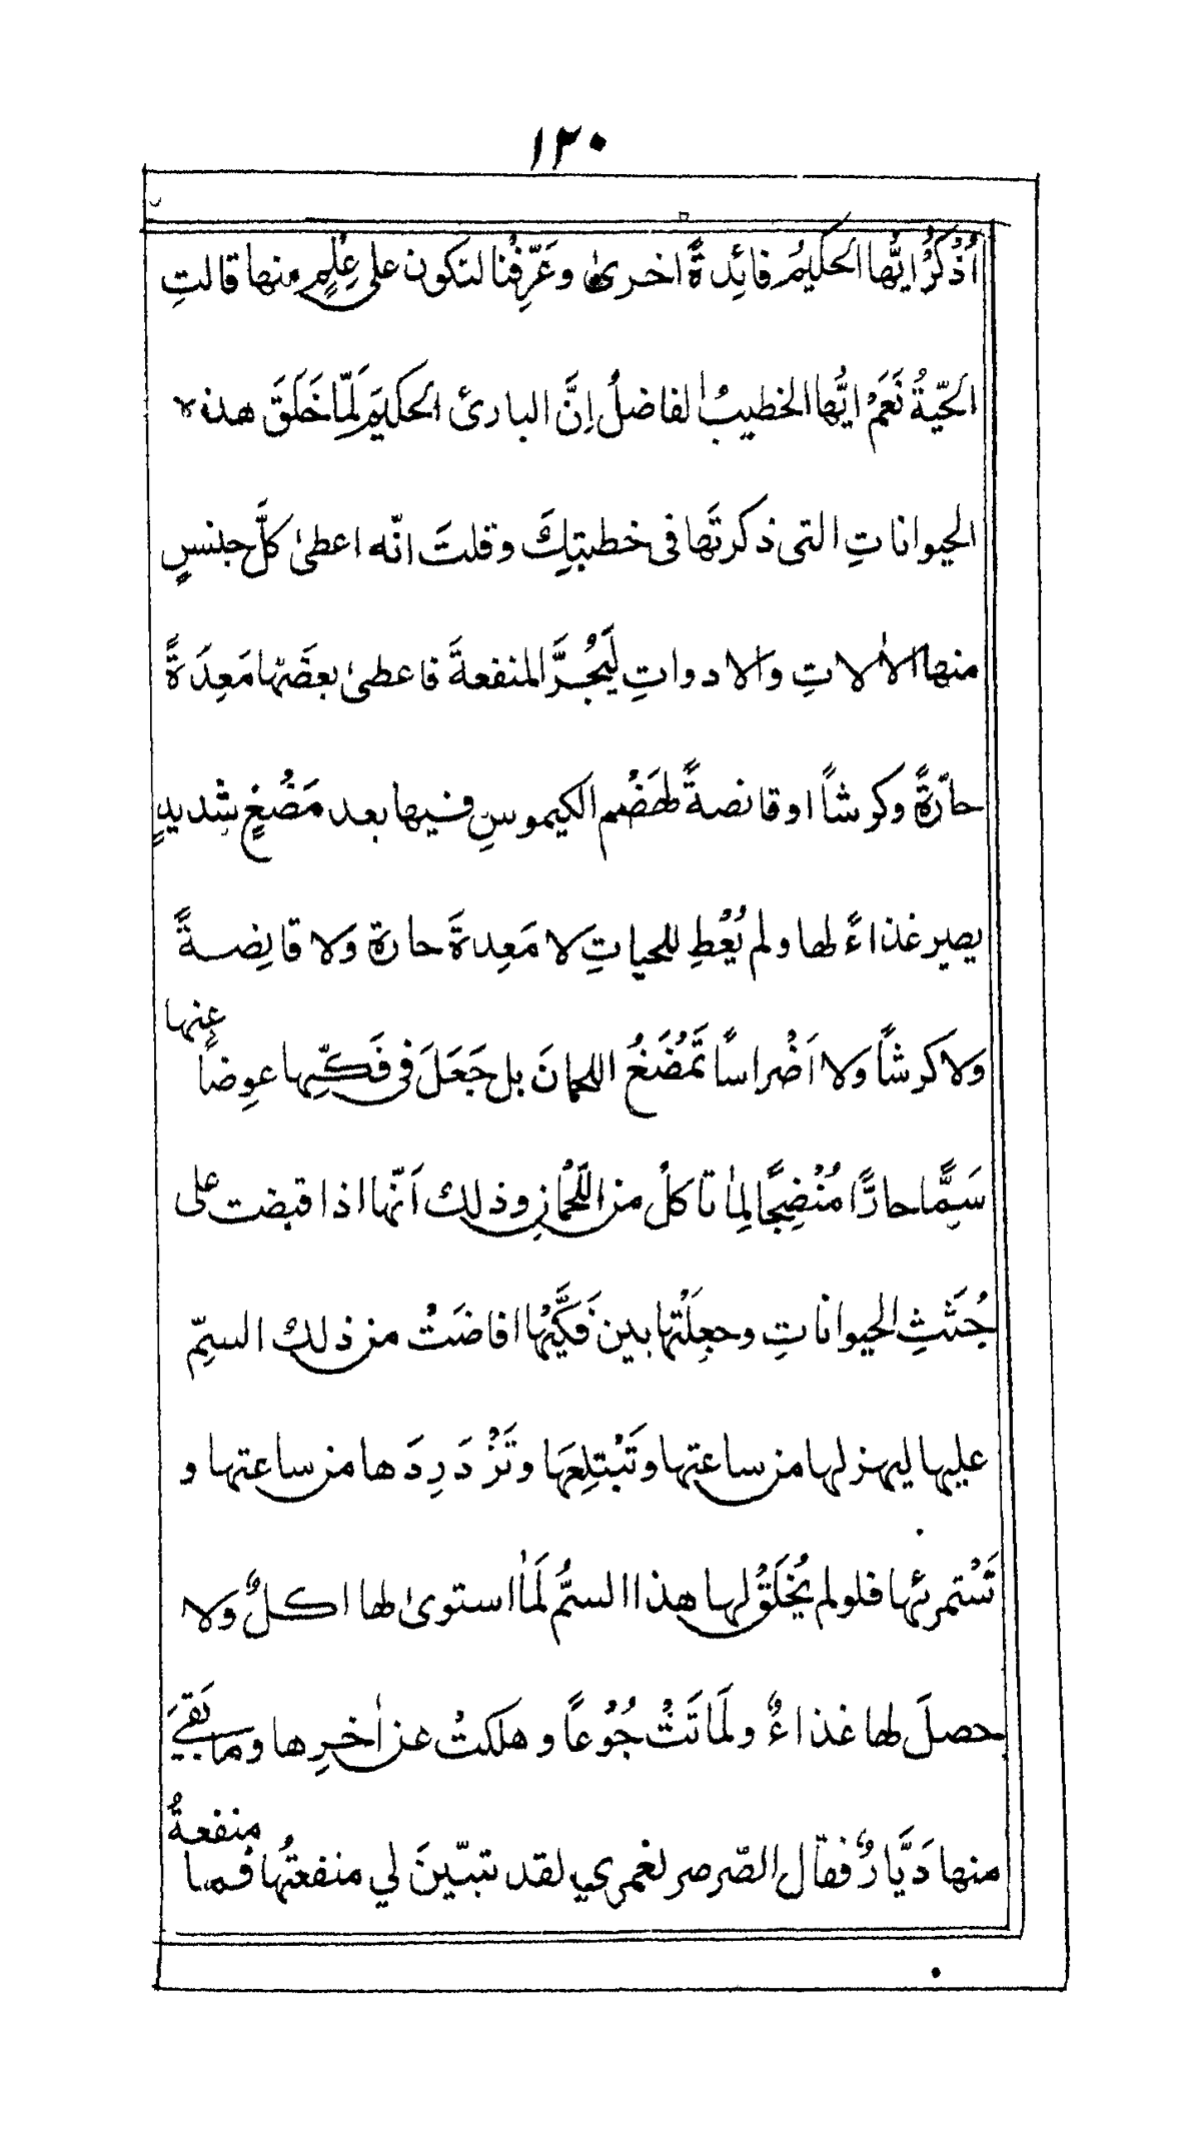 ١٣٠
اُذْكُرْ ايُّها الحَكيمُ فائِدةً اخرىٰ وعَرِّفْنا لنَكون على عِلْمٍ منها قالتِ
الحَيّةُ نَعَمْ ايُّها الخطيبُ الفاضلُ اِنَّ البارئ الحَكيمَ لَمّا خَلَقَ هذه
الحيواناتِ التى ذكرتَها فى خطبتِكَ وقلتَ انّه اعطىٰ كلَّ جنسٍ
منها الاٰلاتِ والادواتِ ليَجُرَّ المنفعةَ فاعطىٰ بعضَها مَعِدَةً
حارّةً وكرشاً اوقانصةً لهَضْمِ الكيموسِ فيها بعد مَضْغٍ شديدٍ
يصير غذاءً لها ولم يُعْطِ للحياتِ لا مَعِدةً حارة وَلا قانِصةً
وَلا كرشاً وَلا اَضْراساً تَمْضَغُ اللحمانَ بل جَعَلَ فى فَكَّيها عوِضاً عنها
سَمًّا حارًّا مُنْضِجًا لِما تاكلُ من اللُّحْمانِ وذلك اَنّها اذا قبضت على
جُثَثِ الحيواناتِ وجعِلَتْها بين فَكَّيْها افاضَتْ من ذلك السمّ
عليها ليهزلها من ساعتها وتَبْتلِعَها وتَزْدَرِدَها من ساعتها و
تَسْتمرئها فلولم يُخْلَقْ لها هذا السمُّ لَمَا استوىٰ لها اكلٌ ولا
حصلَ لها غذاءٌ ولَمَاتَتْ جُوْعاً وهلكتْ عن اٰخرِها ومابَقيَ
منها دَيَّارٌ فقال الصّرصر لعمري لقد تبيّنَ لي منفعتُها فما منفعةُ